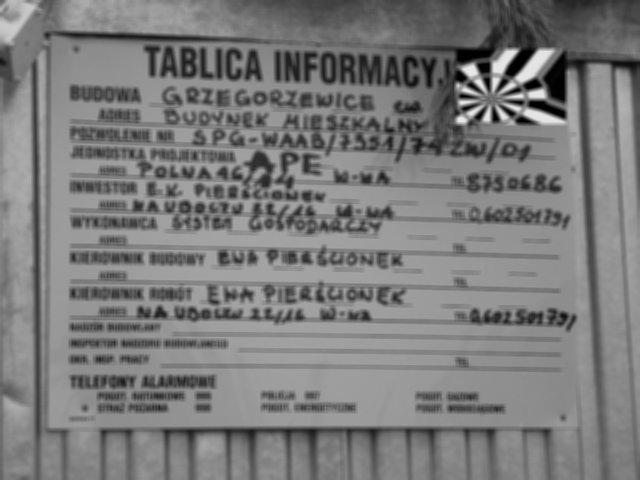 TABLICA INFORMACYJ
BUDOWA GRZEGORZEWICE
ADRES BUDYNEK MIESZKALNY
POZWOLENIE NR SPG-WAAB/7351/74 ZW/01
JEDNOSTKA PROJEKTOWA APE
ADRES POLNA 46/44 W-WA TEL 8750686
INWESTOR E.K. PIERŚCIONEK
ADRES NA UBOCZU 22/16 W-WA TEL 0,602501791
WYKONAWCA SYSTEM GOSPODARCZY
ADRES TEL
KIEROWNIK BUDOWY EWA PIERŚCIONEK
ADRES TEL
KIEROWNIK ROBÓT EWA PIERŚCIONEK
ADRES NA UBOCZU 22/16 W-WA TEL 0,602501791
NADZÓR BUDOWLANY
INSPEKTOR NADZORU BUDOWLANEGO
OKR. INSP. PRACY TEL
TELEFONY ALARMOWE
POGOT. RATUNKOWE 999 POLICJA 997 POGOT. GAZOWE
STRAŻ POŻARNA 998 POGOT. ENERGETYCZNE POGOT. WODOCIĄGOWE